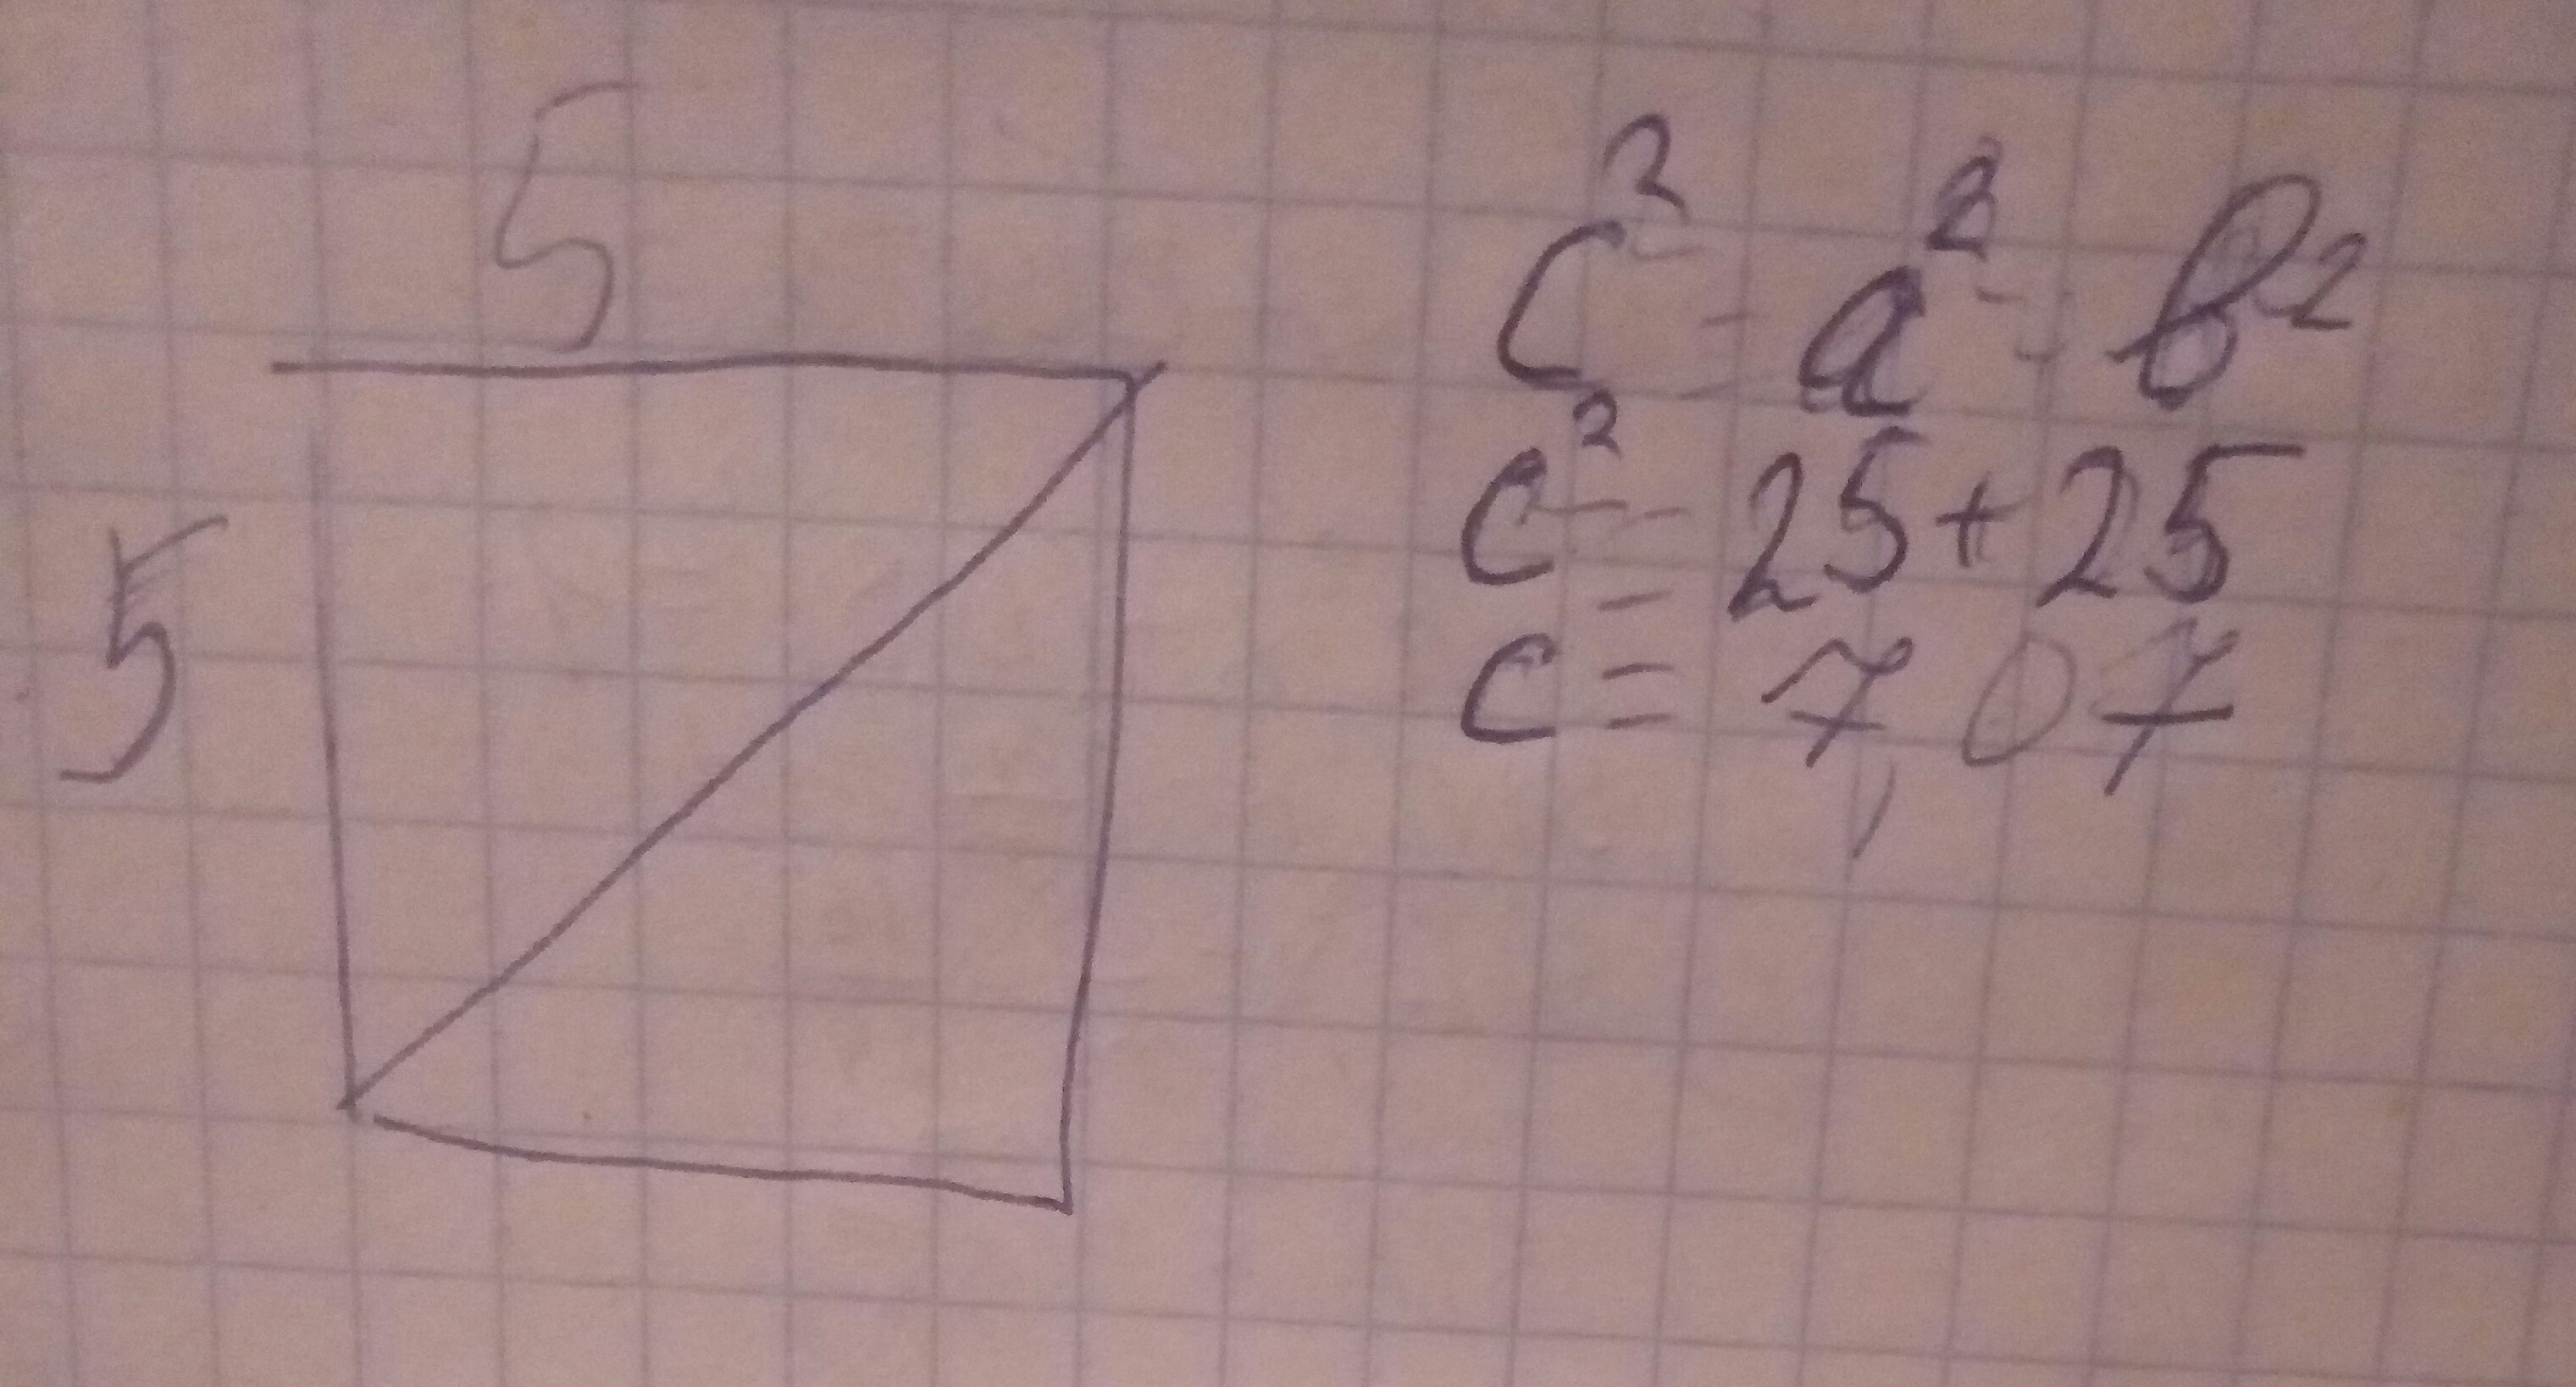 5
5
c² = a² = b²
c² = 25 + 25
c = 7,07